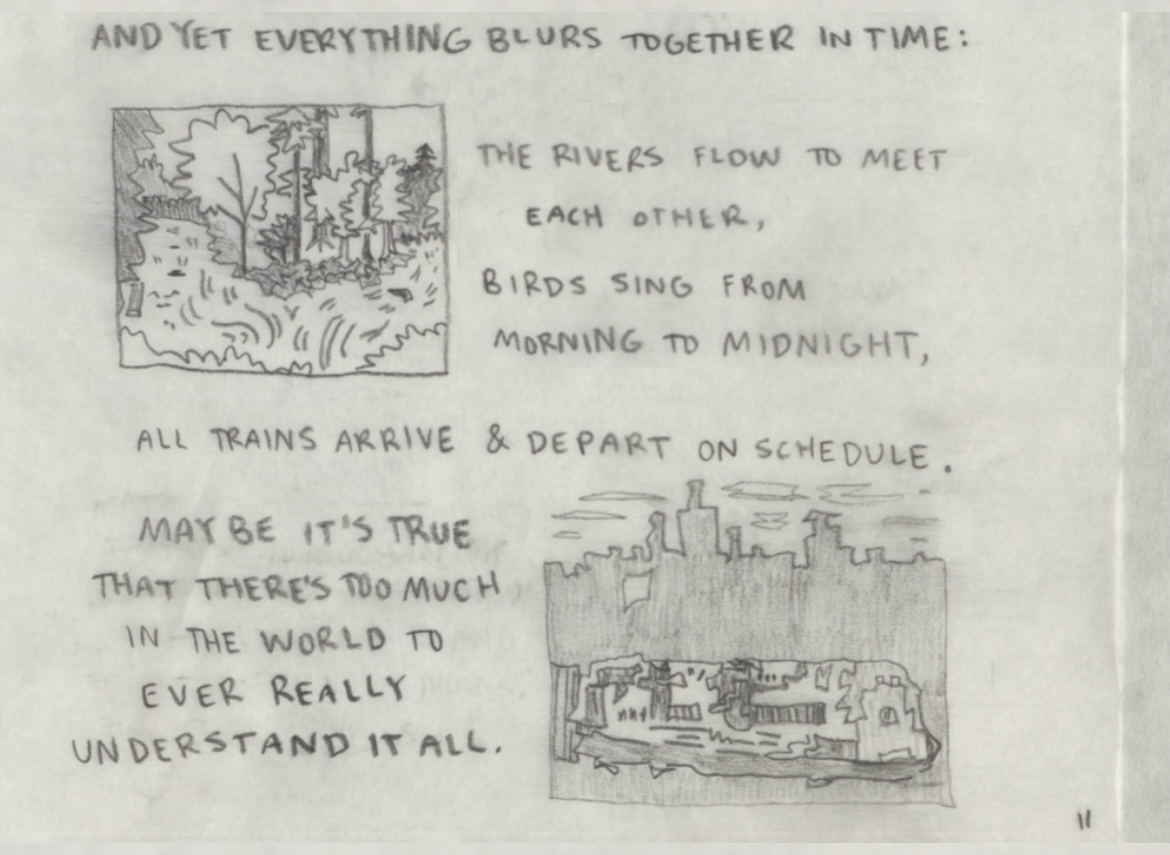 AND YET EVERYTHING BLURS TOGETHER IN TIME:
THE RIVERS FLOW TO MEET
EACH OTHER,
BIRDS SING FROM
MORNING TO MIDNIGHT,
ALL TRAINS ARRIVE & DEPART ON SCHEDULE.
MAYBE IT'S TRUE
THAT THERE'S TOO MUCH
IN THE WORLD TO
EVER REALLY
UNDERSTAND IT ALL.
11